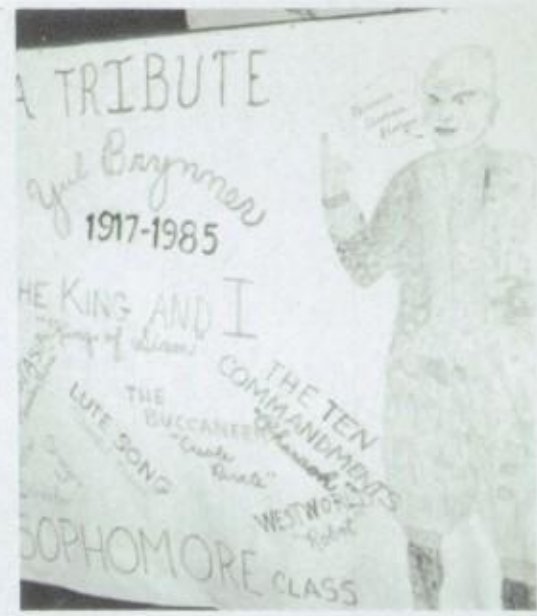 A TRIBUTE
Yul Brynner
1917-1985
HE KING AND I
"King of Siam"
THE TEN
COMMANDMENTS
"Pharaoh"
THE
BUCCANEER
"Creole
Pirate"
LUTE SONG
WESTWORLD
"Robot"
SOPHOMORE CLASS